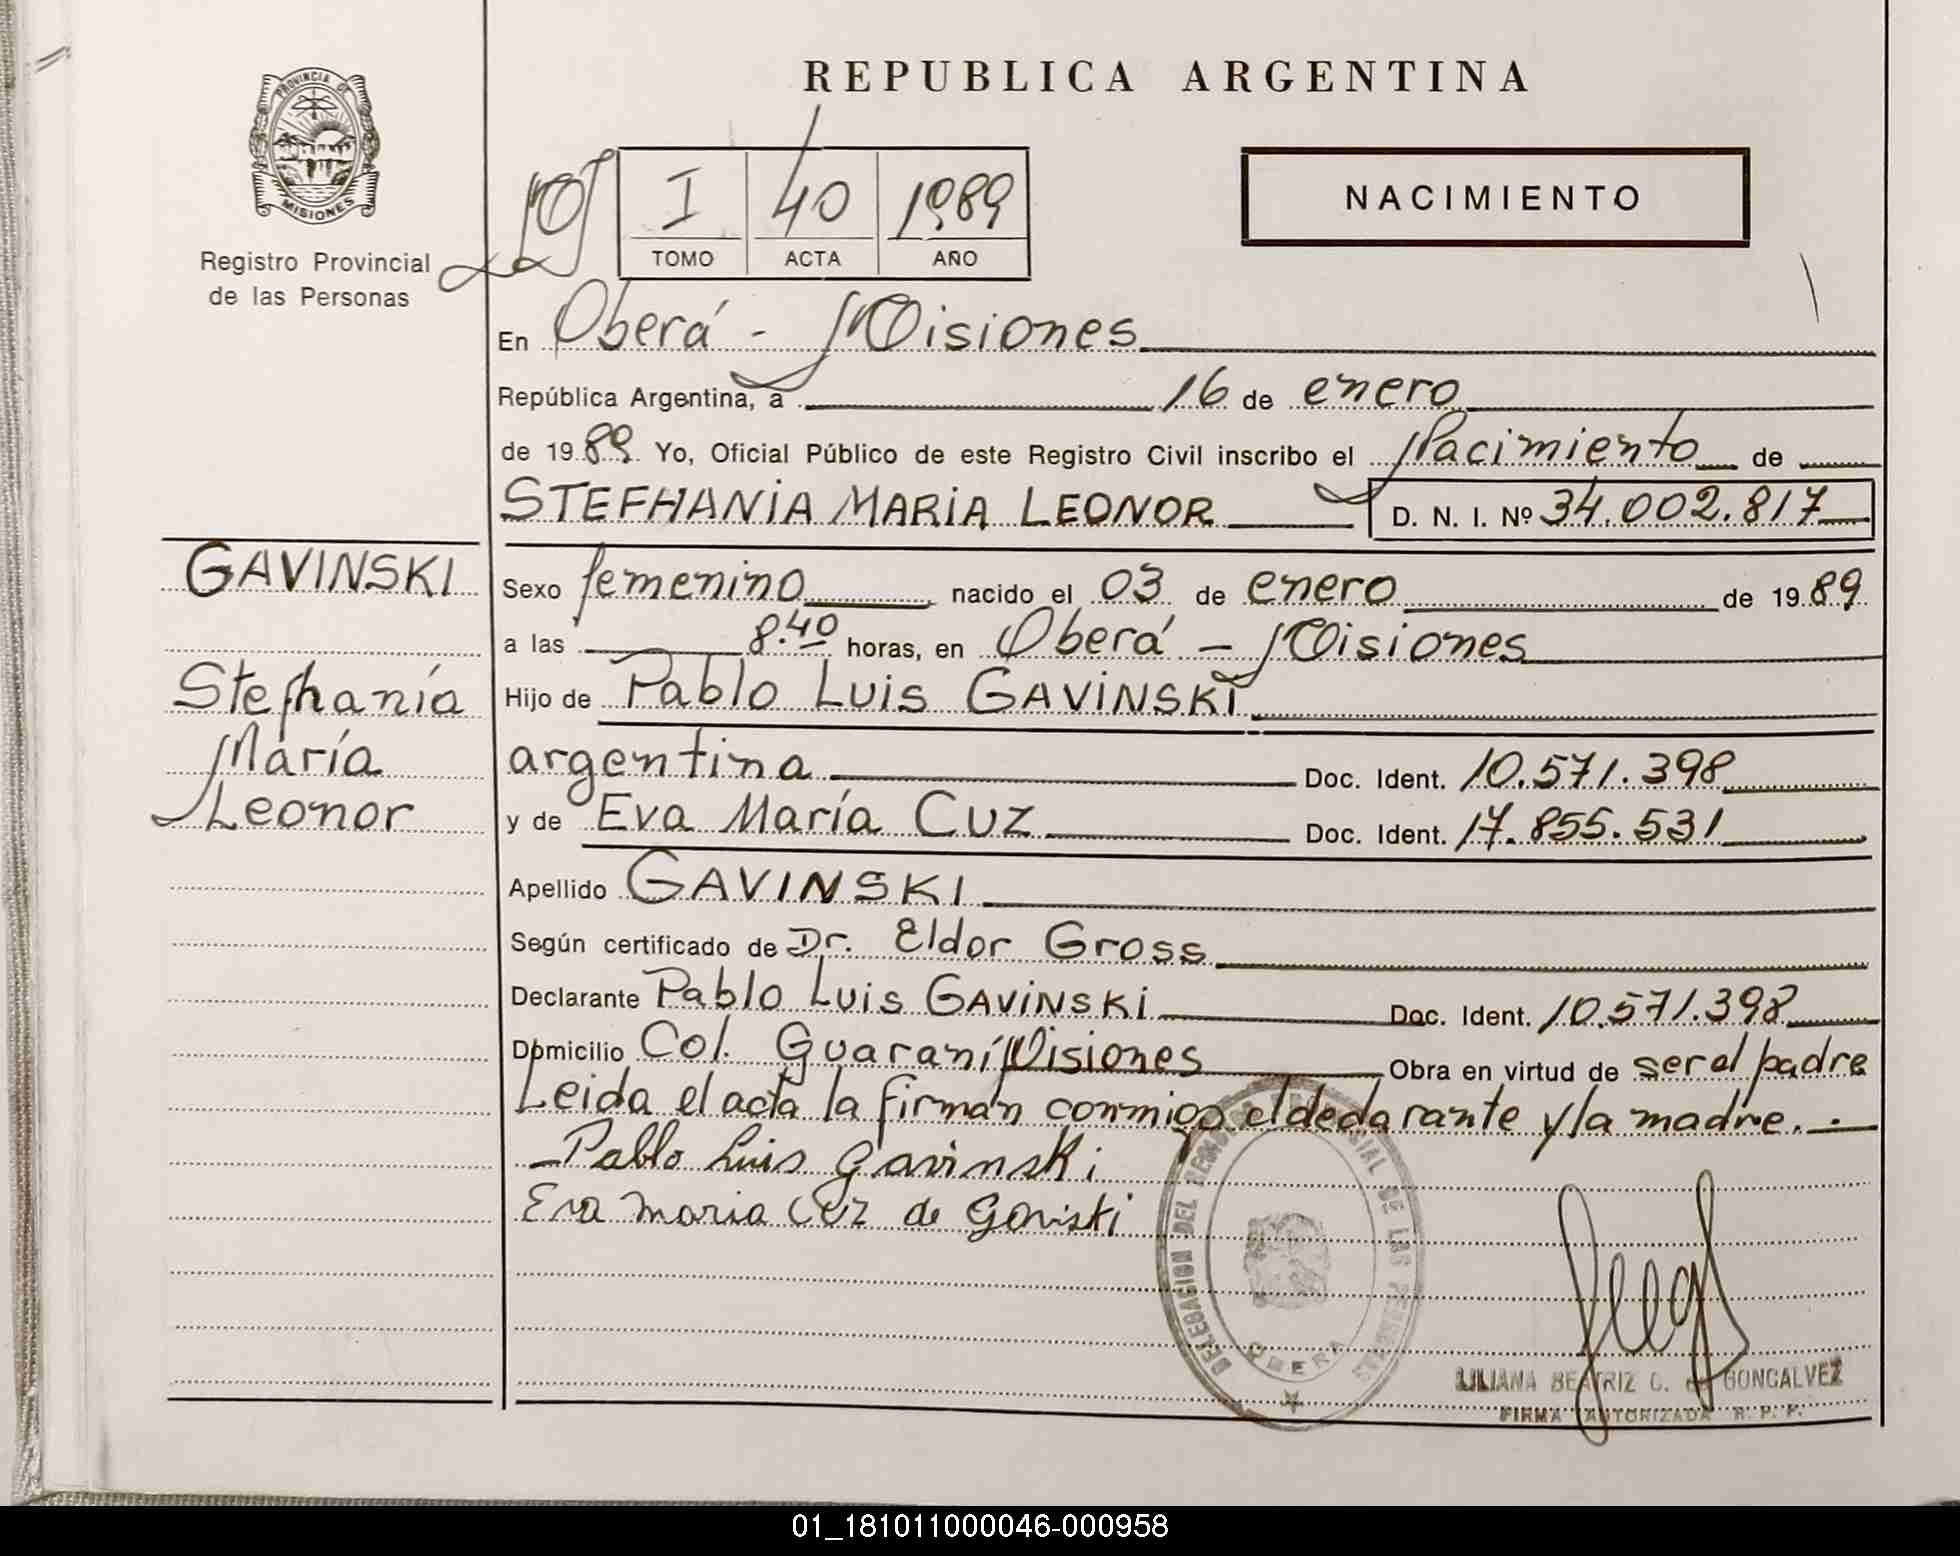 REPUBLICA ARGENTINA
PROVINCIA DE
MISIONES
Registro Provincial
de las Personas
I 40 1989
TOMO ACTA AÑO
NACIMIENTO
En Oberá - Misiones
República Argentina, a 16 de enero
de 1989 Yo, Oficial Público de este Registro Civil inscribo el Nacimiento de
STEFHANIA MARIA LEONOR D. N. I. Nº 34.002.817
GAVINSKI
Stefhanía
María
Leonor
Sexo femenino nacido el 03 de enero de 1989
a las 8.40 horas, en Oberá - Misiones
Hijo de Pablo Luis GAVINSKI
argentina Doc. Ident. 10.571.398
y de Eva María Cuz Doc. Ident. 17.855.531
Apellido GAVINSKI
Según certificado de Dr. Eldor Gross
Declarante Pablo Luis GAVINSKI Doc. Ident. 10.571.398
Domicilio Col. Guaraní Misiones Obra en virtud de ser el padre
Leida el acta la firman conmigo el declarante y la madre. . —
Pablo Luis Gavinski
Eva Maria Cuz de Gaviski
DELEGACION DEL REGISTRO PROVINCIAL DE LAS PERSONAS
OBERA
LILIANA BEATRIZ C. de GONCALVEZ
FIRMA AUTORIZADA R. P. P.
01_181011000046-000958